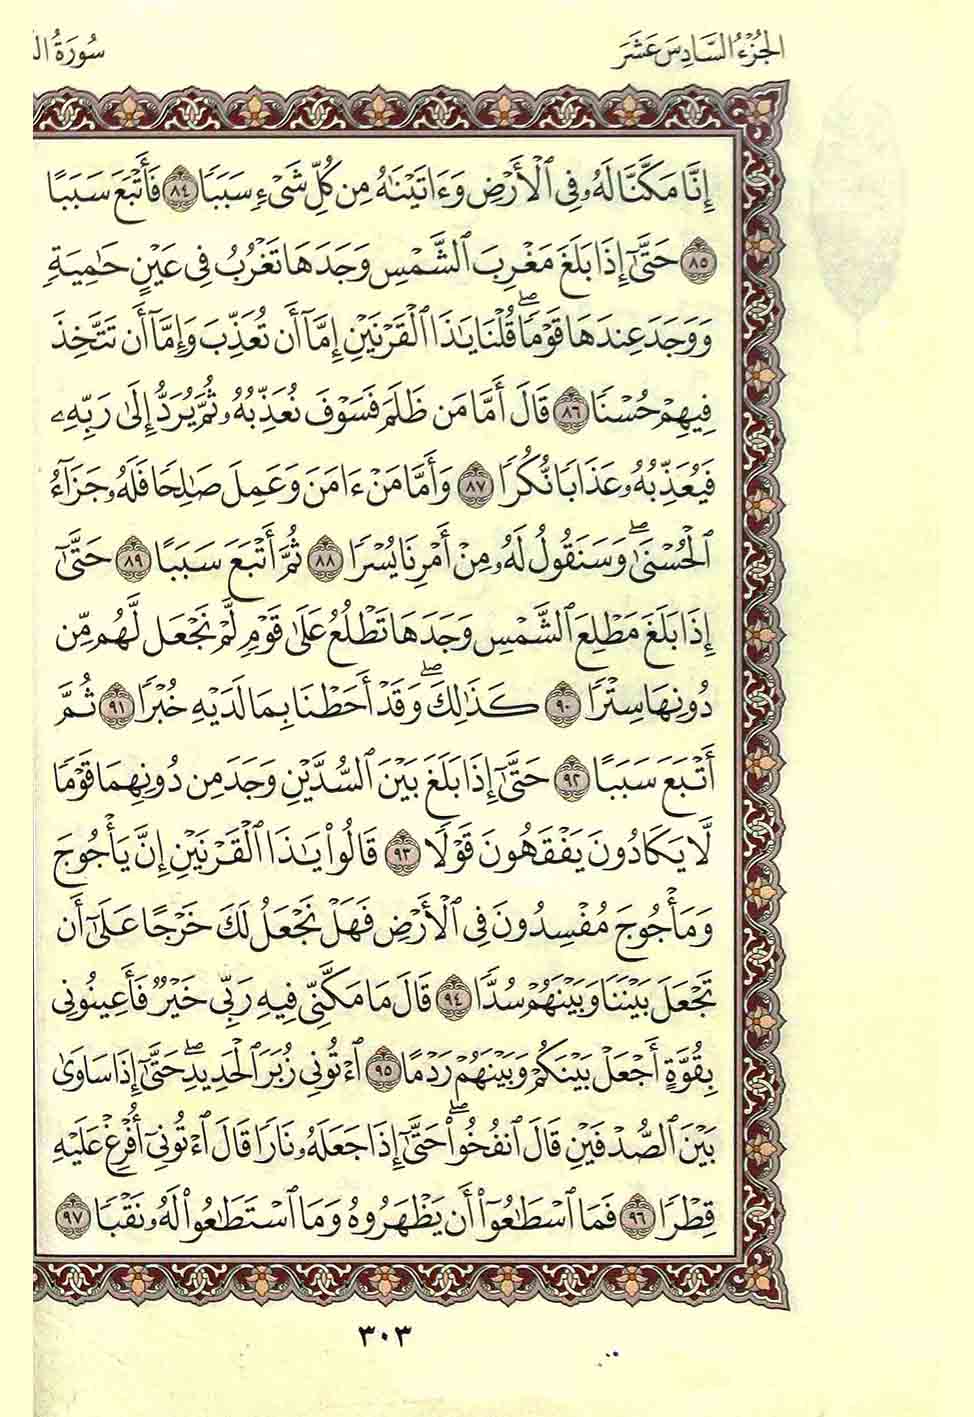 الجُزْءُ السَّادِسَ عَشَرَ
سُورَةُ
إِنَّا مَكَّنَّا لَهُۥ فِي ٱلْأَرْضِ وَءَاتَيْنَٰهُ مِن كُلِّ شَىْءٍ سَبَبًا ٨٤ فَأَتْبَعَ سَبَبًا
٨٥ حَتَّىٰٓ إِذَا بَلَغَ مَغْرِبَ ٱلشَّمْسِ وَجَدَهَا تَغْرُبُ فِي عَيْنٍ حَٰمِيَةٍ
وَوَجَدَ عِندَهَا قَوْمًاۖ قُلْنَا يَٰذَا ٱلْقَرْنَيْنِ إِمَّآ أَن تُعَذِّبَ وَإِمَّآ أَن تَتَّخِذَ
فِيهِمْ حُسْنًا ٨٦ قَالَ أَمَّا مَن ظَلَمَ فَسَوْفَ نُعَذِّبُهُۥ ثُمَّ يُرَدُّ إِلَىٰ رَبِّهِۦ
فَيُعَذِّبُهُۥ عَذَابًا نُّكُرًا ٨٧ وَأَمَّا مَنْ ءَامَنَ وَعَمِلَ صَٰلِحًا فَلَهُۥ جَزَآءُ
ٱلْحُسْنَىٰۖ وَسَنَقُولُ لَهُۥ مِنْ أَمْرِنَا يُسْرًا ٨٨ ثُمَّ أَتْبَعَ سَبَبًا ٨٩ حَتَّىٰٓ
إِذَا بَلَغَ مَطْلِعَ ٱلشَّمْسِ وَجَدَهَا تَطْلُعُ عَلَىٰ قَوْمٍ لَّمْ نَجْعَل لَّهُم مِّن
دُونِهَا سِتْرًا ٩٠ كَذَٰلِكَۖ وَقَدْ أَحَطْنَا بِمَا لَدَيْهِ خُبْرًا ٩١ ثُمَّ
أَتْبَعَ سَبَبًا ٩٢ حَتَّىٰٓ إِذَا بَلَغَ بَيْنَ ٱلسُّدَّيْنِ وَجَدَ مِن دُونِهِمَا قَوْمًا
لَّا يَكَادُونَ يَفْقَهُونَ قَوْلًا ٩٣ قَالُوا۟ يَٰذَا ٱلْقَرْنَيْنِ إِنَّ يَأْجُوجَ
وَمَأْجُوجَ مُفْسِدُونَ فِي ٱلْأَرْضِ فَهَلْ نَجْعَلُ لَكَ خَرْجًا عَلَىٰٓ أَن
تَجْعَلَ بَيْنَنَا وَبَيْنَهُمْ سُدًّا ٩٤ قَالَ مَا مَكَّنِّي فِيهِ رَبِّي خَيْرٌ فَأَعِينُونِي
بِقُوَّةٍ أَجْعَلْ بَيْنَكُمْ وَبَيْنَهُمْ رَدْمًا ٩٥ ٱءْتُونِي زُبَرَ ٱلْحَدِيدِۖ حَتَّىٰٓ إِذَا سَاوَىٰ
بَيْنَ ٱلصُّدْفَيْنِ قَالَ ٱنفُخُوا۟ۖ حَتَّىٰٓ إِذَا جَعَلَهُۥ نَارًا قَالَ ٱءْتُونِيٓ أُفْرِغْ عَلَيْهِ
قِطْرًا ٩٦ فَمَا ٱسْطَٰعُوٓا۟ أَن يَظْهَرُوهُ وَمَا ٱسْتَطَٰعُوا۟ لَهُۥ نَقْبًا ٩٧
٣٠٣